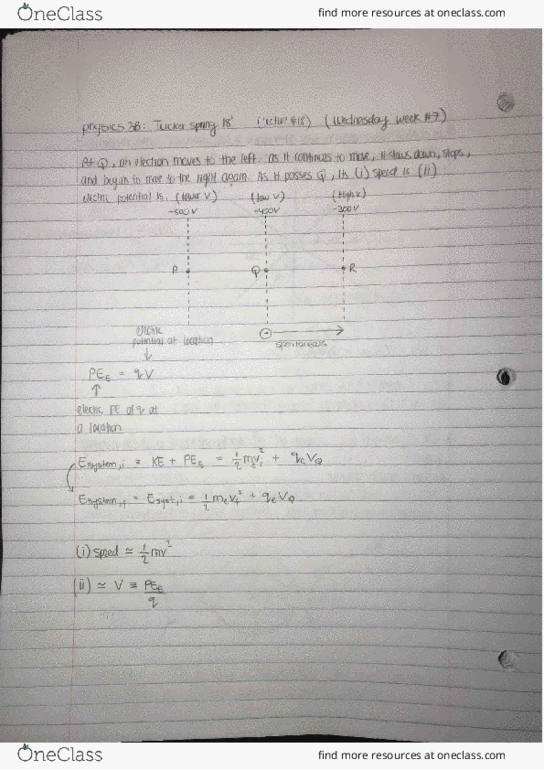 OneClass
find more resources at oneclass.com
physics 3B: Tucker spring 18' (Wednesday week #7)
At Q, an electron moves to the left. As it continues to move, it slows down, stops,
and begins to move to the right again. As it passes Q, its (i) speed is (ii)
electric potential is: (lower V) (low V) (High V)
-500V -400V -300V
P Q R
electric
potential at location
spontaneous
↓
PE_E = qV
↑
electric PE of q at
a location
E_system,i = KE + PE_E = 1/2 m_e v_i^2 + q_e V_Q
E_system,f = E_syst,i = 1/2 m_e v_f^2 + q_e V_Q
(i) speed ≃ 1/2 mv^2
(ii) ≃ V ≡ PE_E/q
OneClass
find more resources at oneclass.com